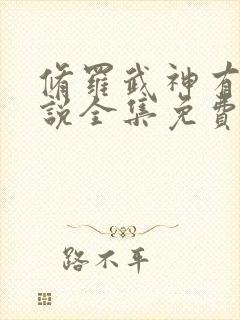 脩羅武神有
說全集免費
路不平